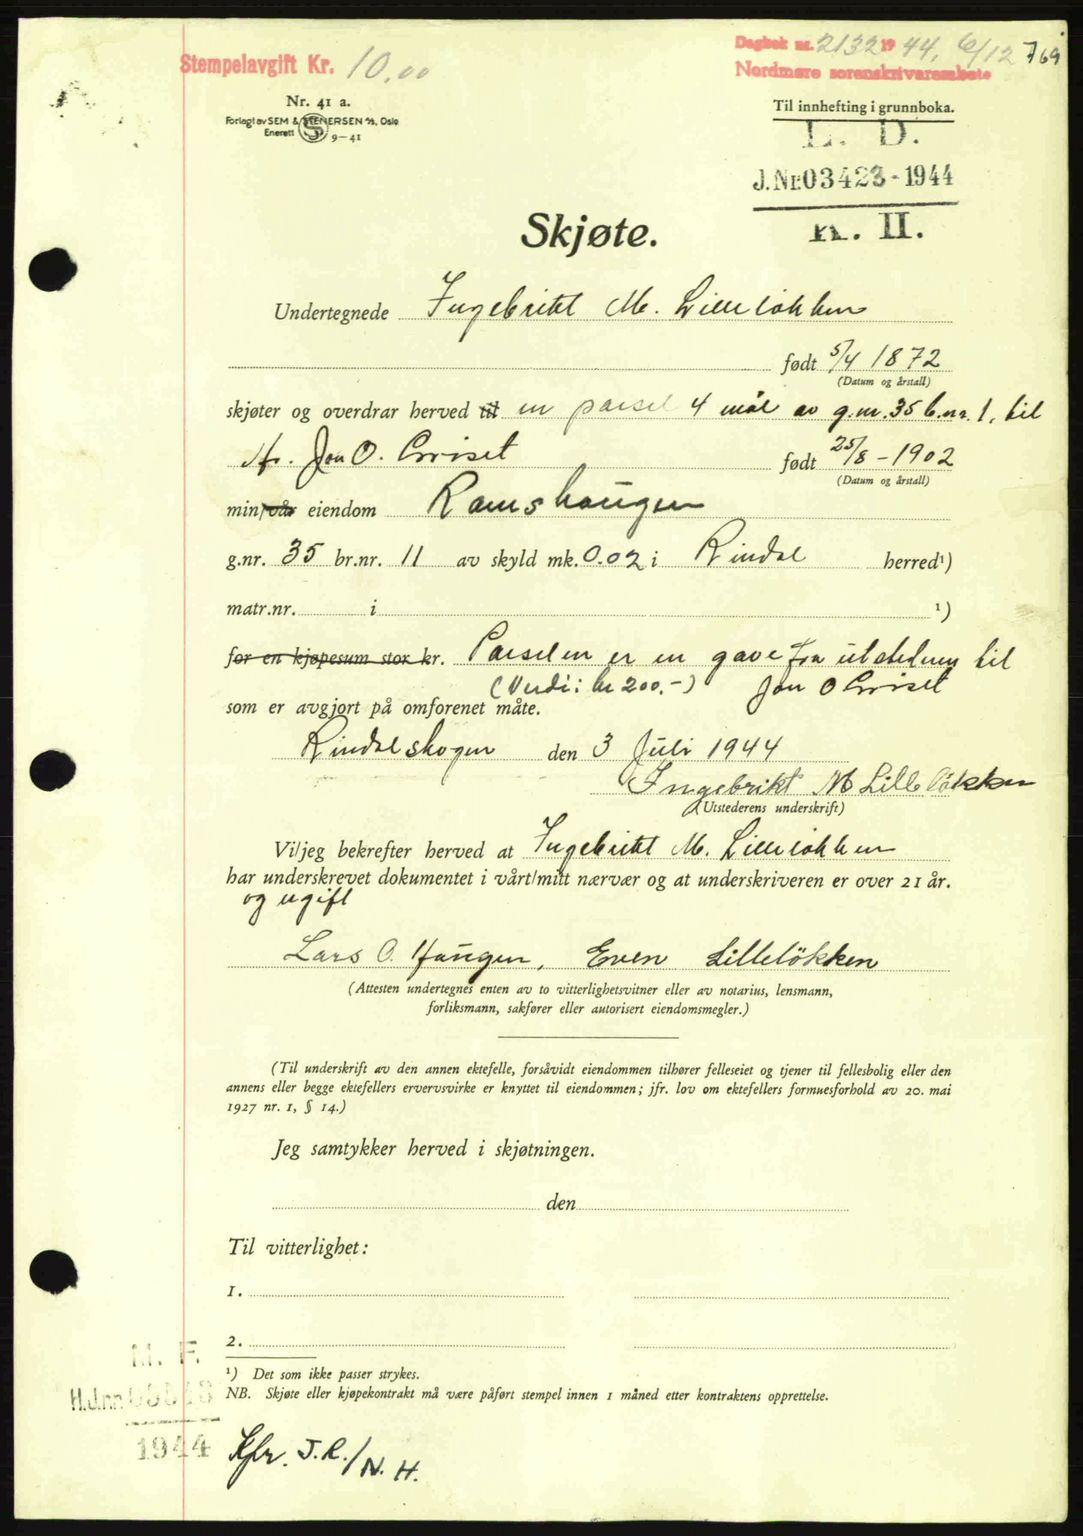 Stempelavgift Kr. 10.00
Dagbok nr. 2132 19 44, 6/12 769
Nordmøre sorenskriverembete
Nr. 41 a.
Forlagt av SEM & STENERSEN A/S, Oslo
Enerett 9-41
Til innhefting i grunnboka.
L. D.
J.Nr. 03423 - 1944
K. II.
Skjøte.
Undertegnede Ingebrikt M. Lilleløkken
født 5/4 1872
(Datum og årstall)
skjøter og overdrar herved til en parsel 4 mål av g.nr. 35 b.nr. 1, til
Hr. Jon O.
født 25/8 - 1902
(Datum og årstall)
min/vår eiendom Ramshaugen
g.nr. 35 br.nr. 11 av skyld mk. 0.02 i Rindal herred¹)
matr.nr. i ¹)
for en kjøpesum stor kr. Parselen er en gave fra utstederen til
(Verdi: kr 200.-) Jon O
som er avgjort på omforenet måte.
Rindalskogen den 3 Juli 1944
Ingebrikt M Lilleløkken
(Utstederens underskrift)
Vi/jeg bekrefter herved at Ingebrikt M. Lilleløkken
har underskrevet dokumentet i vårt/mitt nærvær og at underskriveren er over 21 år.
og ugift
Lars O. Haugen, Even Lilleløkken
(Attesten undertegnes enten av to vitterlighetsvitner eller av notarius, lensmann,
forliksmann, sakfører eller autorisert eiendomsmegler.)
(Til underskrift av den annen ektefelle, forsåvidt eiendommen tilhører felleseiet og tjener til fellesbolig eller den
annens eller begge ektefellers ervervsvirke er knyttet til eiendommen; jfr. lov om ektefellers formuesforhold av 20. mai
1927 nr. 1, § 14.)
Jeg samtykker herved i skjøtningen.
den
Til vitterlighet:
1.
2.
¹) Det som ikke passer strykes.
NB. Skjøte eller kjøpekontrakt må være påført stempel innen 1 måned etter kontraktens opprettelse.
H.J.nr.
1944
Kfr. J.R./N.H.